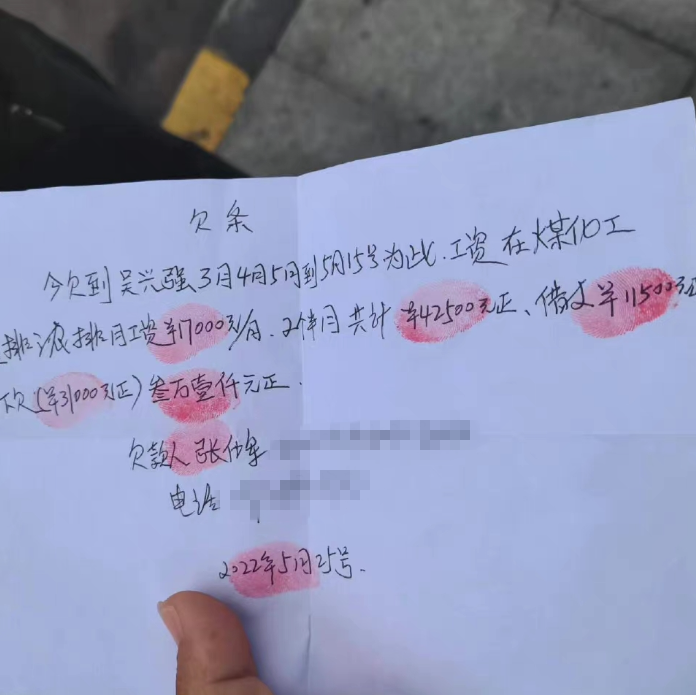 欠条
今欠到吴兴强3月4月5月到5月15号为此.工资在煤化工
排 排月工资¥17000元/月.2个半月共计¥42500元正、借支¥11500元正
欠(¥31000元正)叁万壹仟元正.
欠款人张
电话
2022年5月25号.